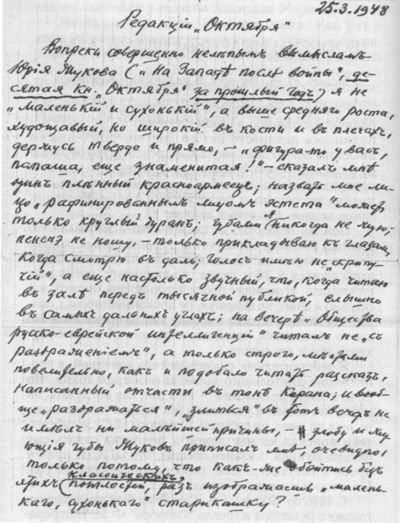 25.3.1948
Редакціи „Октября"
Вопреки совершенно нелѣпымъ вымысламъ
Юрія Жукова („На Западѣ послѣ войны", де-
сятая кн. „Октября" за прошлый годъ) я не
„маленькій и сухонькій", а выше средняго роста,
худощавый, но широкій въ кости и въ плечахъ,
держусь твердо и прямо, – „фигура-то у васъ,
папаша, еще знаменитая!" – сказалъ мнѣ
одинъ плѣнный красноармеецъ; назвать мое ли-
цо „рафинированнымъ лицомъ эстета" можетъ
только круглый дуракъ; губами я никогда не жую;
пенснэ не ношу, – только прикладываю къ глазамъ,
когда смотрю въ даль; голосъ имѣю не „скрипу-
чій", а еще настолько звучный, что, когда читаю
въ залѣ передъ тысячной публикой, слышно
въ самыхъ дальнихъ углахъ; на вечерѣ „Общества
русско-еврейской интеллигенціи" читалъ не „съ
раздраженіемъ", а только строго, мѣстами
повелительно, какъ и подобало читать разсказъ,
написанный отчасти въ тонѣ Корана; и вооб-
ще „раздражаться", „злиться" въ этотъ вечеръ не
имѣлъ ни малѣйшей причины, – и злобу и жу-
ющія губы Жуковъ приписалъ мнѣ, очевидно,
только потому, что какъ-же обойтись безъ
этихъ классическихъ пошлостей, разъ изображаешь „малень-
каго, сухонькаго" старикашку?